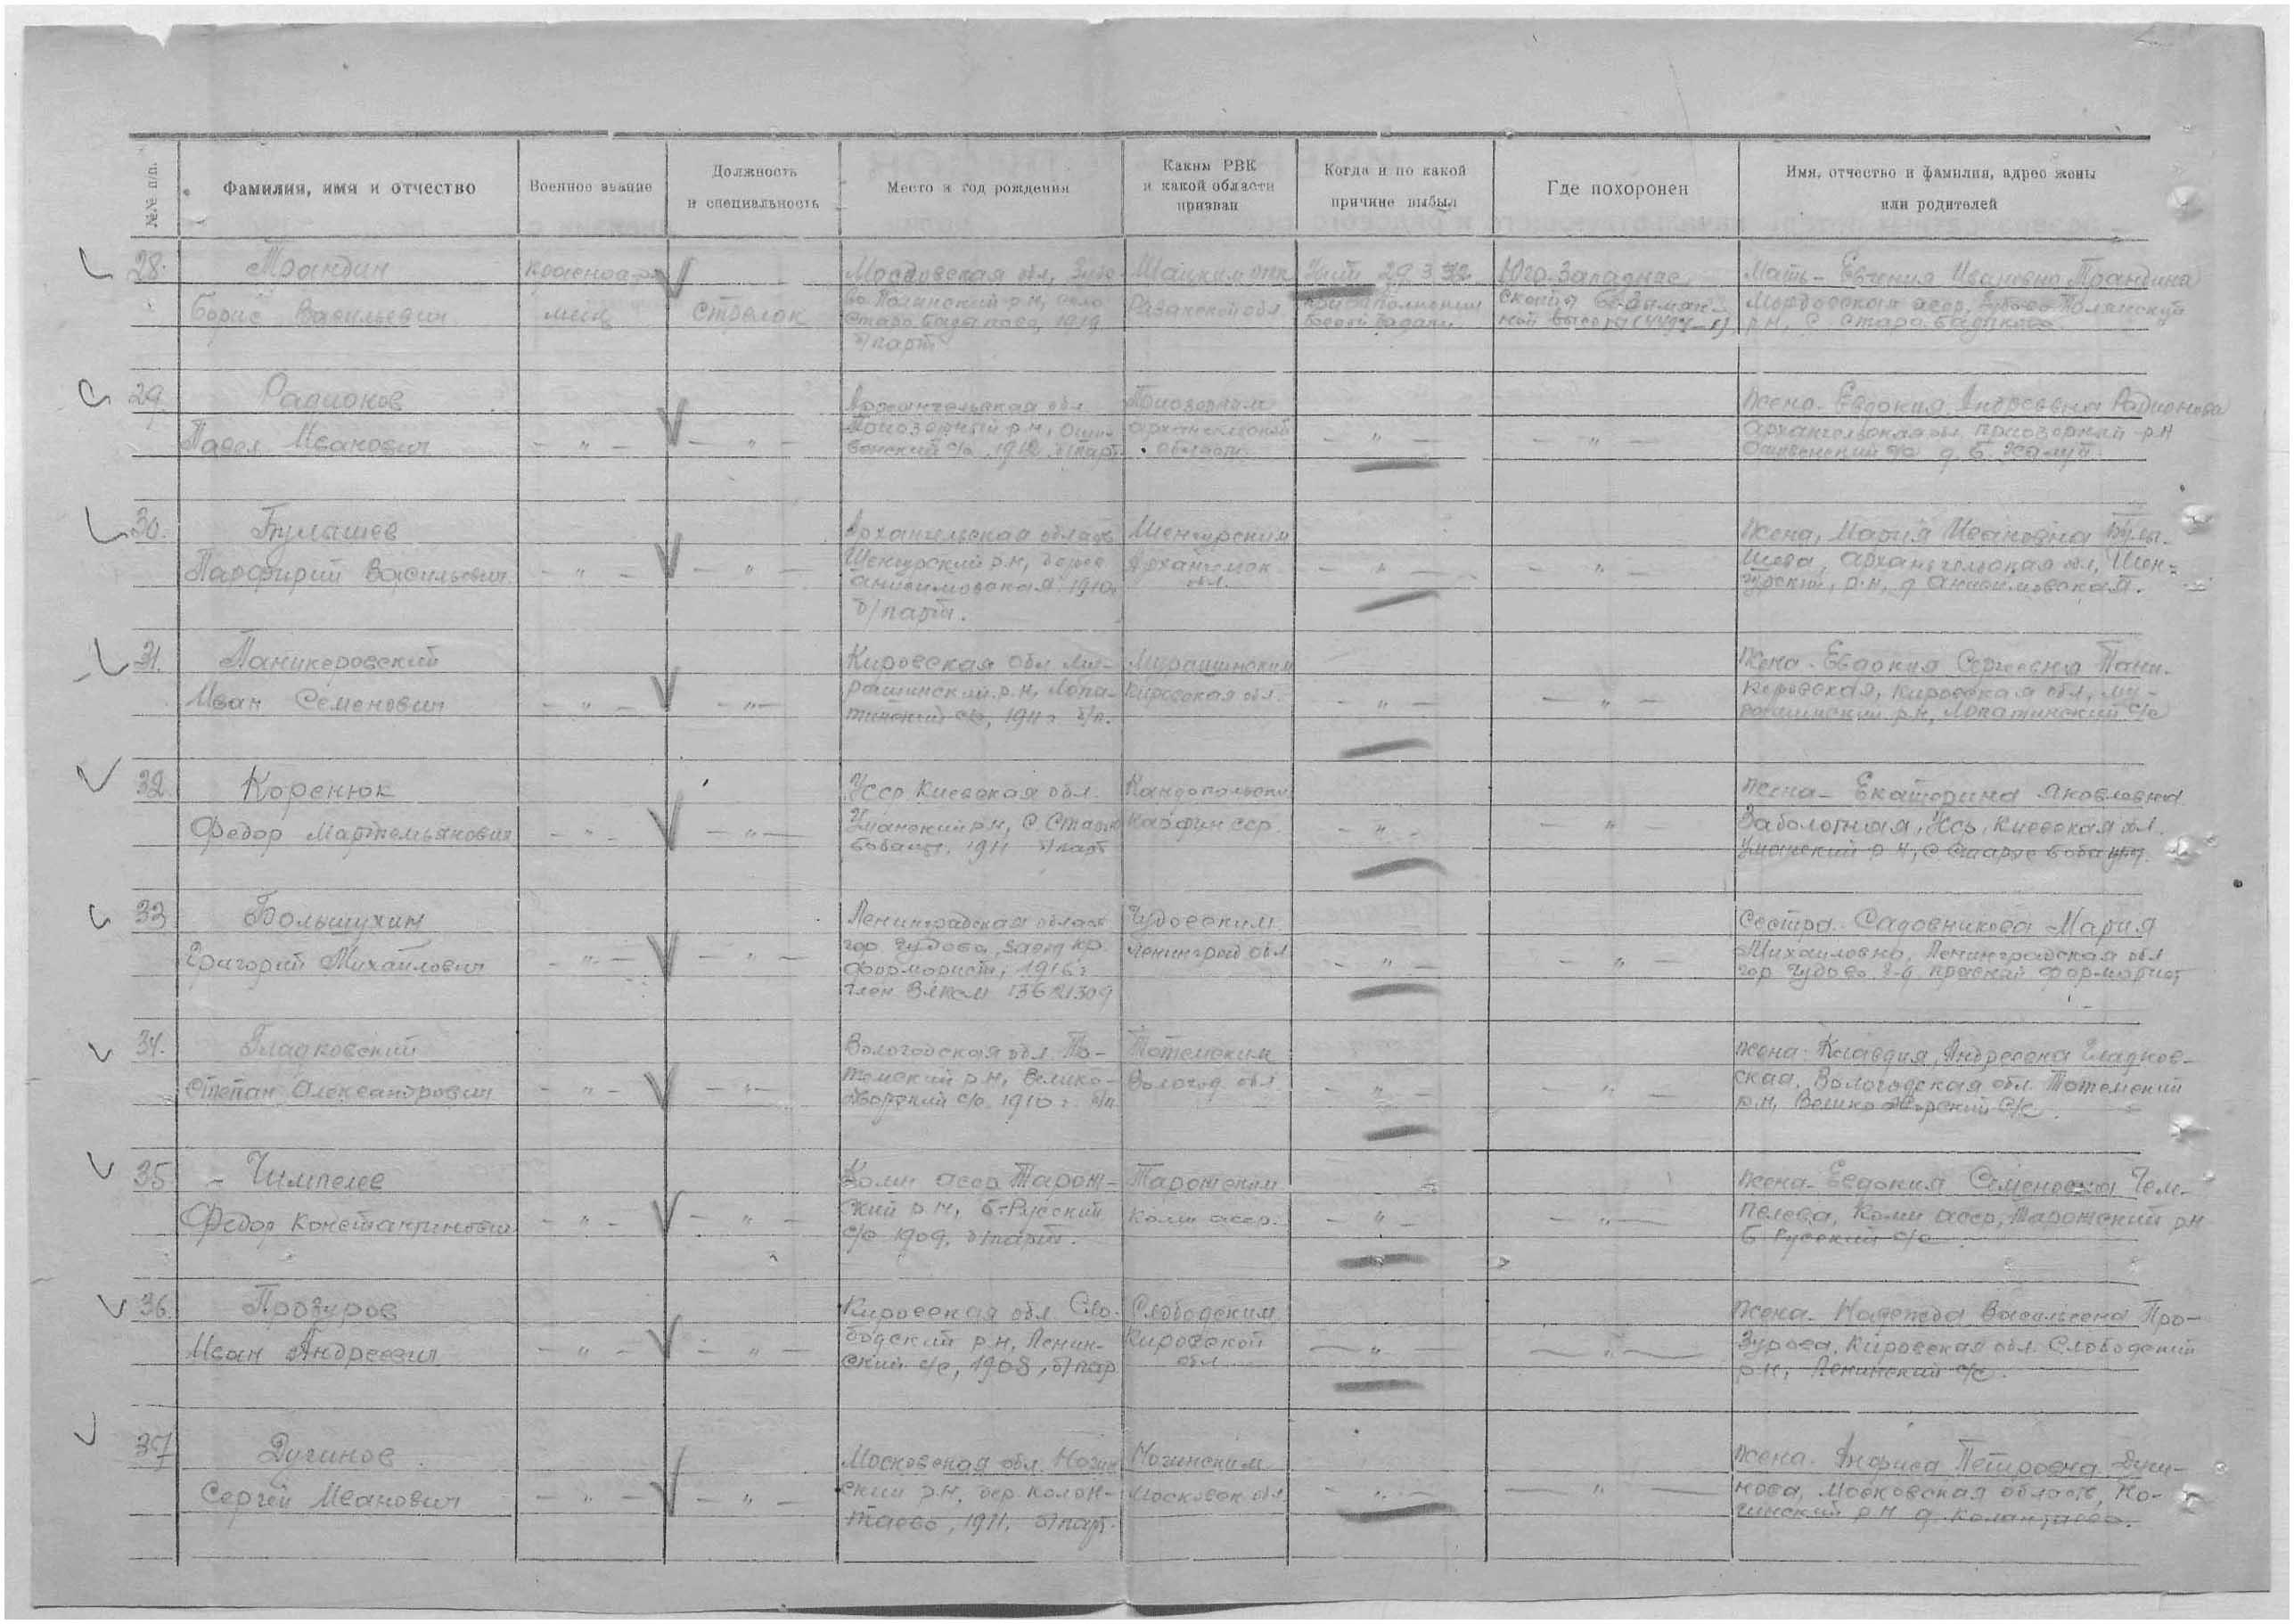 №№ п/п.
Фамилия, имя и отчество
Военное звание
Должность
и специальность
Место и год рождения
Каким РВК
и какой области
призван
Когда и по какой
причине выбыл
Где похоронен
Имя, отчество и фамилия, адрес жены
или родителей
28.
Трандин
Борис Васильевич
Красноар
меец
Стрелок
Московская обл, Зубо-
во Полянский р-н, село
Старо Бадиково, 1919
б/парт
Шацким
Рязанской обл
29.3.42
при выполнении
боевой задачи
Юго-Западнее
скаты безыман-
ной высоты
Мать - Евгения Ивановна Трандина
Мордовская асср, Зубово Полянский
р-н, с Старо Бадиково
29.
Радионов
Павел Иванович
- " -
- " -
Архангельская обл
Приозерный р-н, Оше-
венский с/с, 1912, б/парт
Приозерным
архангельской
области
- " -
- " -
Жена - Евдокия Андреевна Радионова
Архангельская обл, приозерный р-н
Ошевенский с/с д. Б. Халуй
30.
Булышев
Парфирий Васильевич
- " -
- " -
Архангельская область
Шенкурский р-н,
анисимовская 1910г
б/парт.
Шенкурским
Архангельск
обл.
- " -
- " -
Жена, Мария Ивановна Булы-
шева, Архангельская обл, Шен-
курский, р-н, д Анисимовская.
31.
Паникоровский
Иван Семенович
- " -
- " -
Кировская обл Му-
рашинский р-н, Лопа-
тинский с/с, 1911г б/п.
Мурашинским
Кировская обл.
- " -
- " -
Жена - Евдокия Сергеевна Пани-
коровская, Кировская обл, Му-
рашинский р-н, Лопатинский с/с
32.
Коренюк
Федор Мартемьянович
- " -
- " -
Усср Киевская обл.
Уманский р-н, с. Старые
Бабаны, 1911 б/парт
Кар фин сср
- " -
- " -
Жена - Екатерина Яковлевна
Заболотная, Усср, Киевская обл.
Уманский р-н, с Старые Бабаны.
33
Большухин
Григорий Михайлович
- " -
- " -
Ленинградская область
гор Чудово, завод кр.
формовист, 1916г
член Влксм 13621309
Чудовским
Ленинград обл
- " -
- " -
Сестра - Садовникова Мария
Михайловна, Ленинградская обл
гор Чудово з-д красный формовист
34.
Гладковский
Степан Александрович
- " -
- " -
Вологодская обл. То-
темский р-н, Велико-
дворский с/с 1910г. б/п
Тотемским
Вологод обл
- " -
- " -
Жена - Клавдия Андреевна Гладков-
ская, Вологодская обл. Тотемский
р-н, Велико дворский с/с.
35
Чимпелев
Федор Константинович
- " -
- " -
Коми асср
ский р-н, б-Русский
с/с 1909, б/парт.
Коми асср.
- " -
- " -
Жена - Евдокия Семеновна Чем-
пелева, Коми асср, р-н
б Русский с/с.
36.
Прозуров
Иван Андреевич
- " -
- " -
Кировская обл. Сло-
бодский р-н, Ленин-
ский с/с, 1908, б/пар
Слободским
Кировской
обл
- " -
- " -
Жена - Надежда Васильевна Про-
зурова, Кировская обл. Слободский
р-н, Ленинский с/с.
37
Дугинов
Сергей Иванович
- " -
- " -
Московская обл. Ногин
ский р-н, дер Колон-
таево, 1911. б/парт.
Ногинским
Московск обл
- " -
- " -
Жена - Анфиса Петровна Дуги-
нова, Московская область, Но-
гинский р-н д Колантаево.